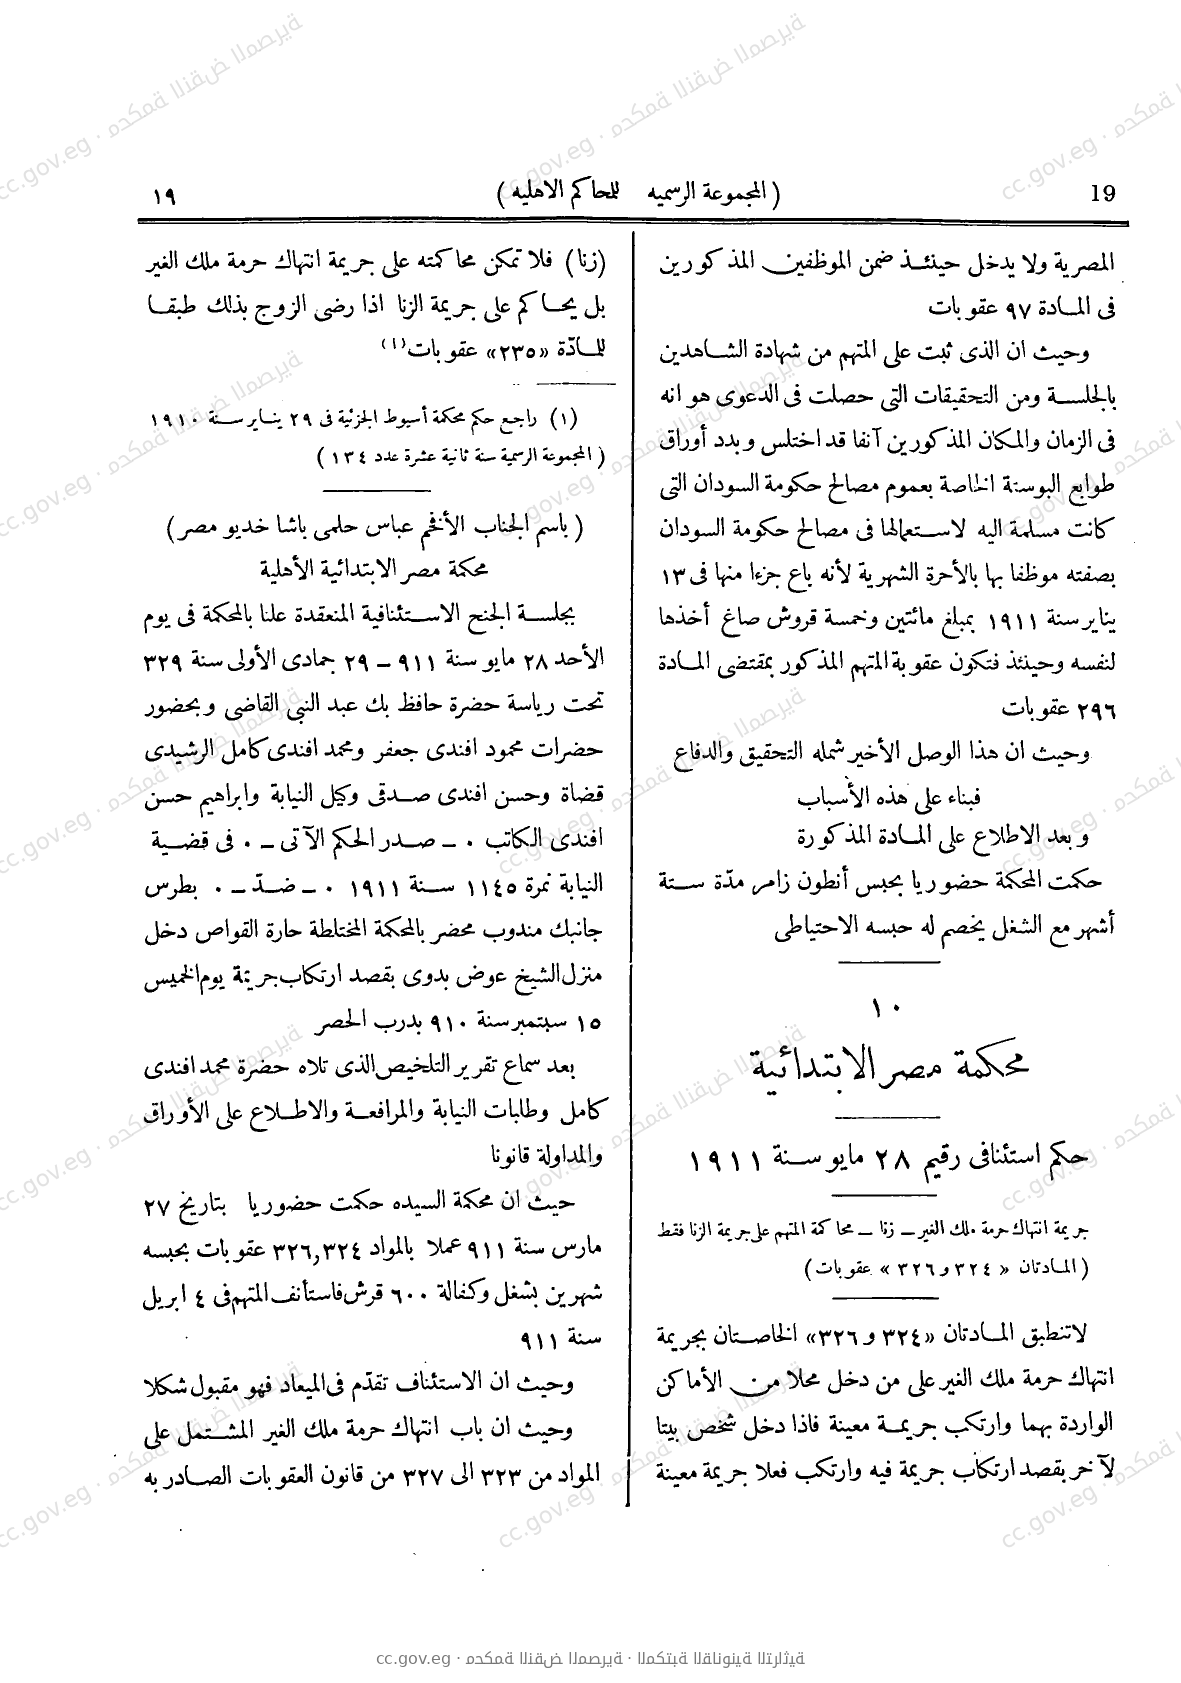 19 ( المجموعة الرسميه للمحاكم الاهليه ) ١٩
المصرية ولا يدخل حينئـذ ضمن الموظفين المذكورين
فى المـادة ٩٧ عقوبات
وحيث ان الذى ثبت على المتهم من شهادة الشـاهدين
بالجلسـة ومن التحقيقات التى حصلت فى الدعوى هو انه
فى الزمان والمكان المذكورين آنفا قد اختلس وبدد أوراق
طوابع البوستة الخاصة بعموم مصالح حكومة السودان التى
كانت مسلمة اليه لاستعمالها فى مصالح حكومة السودان
بصفته موظفا بها بالأجرة الشهرية لأنه باع جزءا منها فى ١٣
يناير سنة ١٩١١ بمبلغ مائتين وخمسة قروش صاغ أخذها
لنفسه وحينئذ فتكون عقوبة المتهم المذكور بمقتضى المـادة
٢٩٦ عقوبات
وحيث ان هذا الوصل الأخير شمله التحقيق والدفاع
فبناء على هذه الأسباب
وبعد الاطلاع على المـادة المذكورة
حكمت المحكمة حضوريا بحبس أنطون زامر مدّة ستـة
أشهر مع الشغل يخصم له حبسه الاحتياطى
١٠
محكمة مصر الابتدائية
حكم استئنافى رقيم ٢٨ مايو سـنة ١٩١١
جريمة انتهاك حرمة ملك الغير ـ زنا ـ محاكمة المتهم على جريمة الزنا فقط
( المـادتان « ٣٢٤ و ٣٢٦ » عقوبات )
لا تنطبق المـادتان «٣٢٤ و ٣٢٦» الخاصـتان بجريمة
انتهاك حرمة ملك الغير على من دخل محلا من الأماكن
الواردة بهما وارتكب جريمـة معينة فاذا دخل شخص بيتا
لآخر بقصد ارتكاب جريمة فيه وارتكب فعلا جريمة معينة
(زنا) فلا تمكن محاكمته على جريمة انتهاك حرمة ملك الغير
بل يحـاكم على جريمة الزنا اذا رضى الزوج بذلك طبقـا
للمـادّة «٢٣٥» عقوبات(١)
(١) راجع حكم محكمة أسيوط الجزئية فى ٢٩ ينـاير سـنة ١٩١٠
( المجموعة الرسمية سنة ثانية عشرة عدد ١٣٤ )
( باسم الجناب الأفخم عباس حلمى باشا خديو مصر )
محكمة مصر الابتدائية الأهلية
بجلسـة الجنح الاسـتئنافية المنعقدة علنا بالمحكمة فى يوم
الأحد ٢٨ مايو سنة ٩١١ ـ ٢٩ جمادى الأولى سنة ٣٢٩
تحت رياسة حضرة حافظ بك عبد النبى القاضى وبحضور
حضرات محمود افندى جعفر ومحمد افندى كامل الرشيدى
قضاة وحسن افندى صـدقى وكيل النيابة وابراهيم حسن
افندى الكاتب ٠ ـ صـدر الحكم الآتى ـ ٠ فى قضـية
النيابة نمرة ١١٤٥ سـنة ١٩١١ ٠ ـ ضـدّ ـ ٠ بطرس
جانبك مندوب محضر بالمحكمة المختلطة حارة القواص دخل
منزل الشيخ عوض بدوى بقصد ارتكاب جريمة يوم الخميس
١٥ سبتمبر سنة ٩١٠ بدرب الحصر
بعد سماع تقرير التلخيص الذى تلاه حضرة محمد افندى
كامل وطلبات النيابة والمرافعـة والاطـلاع على الأوراق
والمداولة قانونا
حيث ان محكمة السيده حكمت حضوريا بتاريخ ٢٧
مارس سنة ٩١١ عملا بالمواد ٣٢٦,٣٢٤ عقوبات بحبسه
شهرين بشغل وكفالة ٦٠٠ قرش فاستأنف المتهم فى ٤ ابريل
سنة ٩١١
وحيث ان الاستئناف تقدّم فى الميعاد فهو مقبول شكلا
وحيث ان باب انتهاك حرمة ملك الغير المشـتمل على
المواد من ٣٢٣ الى ٣٢٧ من قانون العقوبات الصـادر به
cc.gov.eg · محكمة النقض المصرية · المكتبة القانونية التراثية